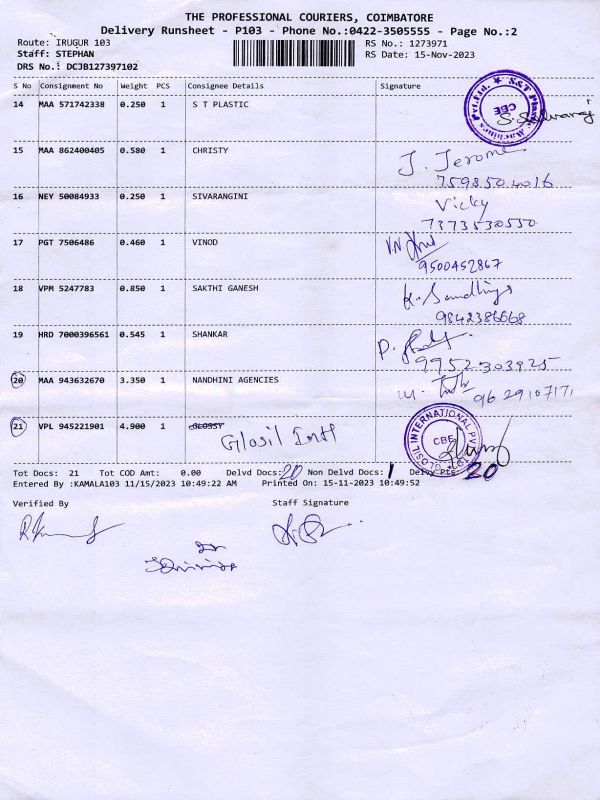 THE PROFESSIONAL COURIERS, COIMBATORE
Delivery Runsheet - P103 - Phone No.:0422-3505555 - Page No.:2
Route: IRUGUR 103 RS No.: 1273971
Staff: STEPHAN RS Date: 15-Nov-2023
DRS No.: DCJB127397102
S No Consignment No Weight PCS Consignee Details Signature
14 MAA 571742338 0.250 1 S T PLASTIC
S. Selvaraj
CBE
15 MAA 862400405 0.580 1 CHRISTY J. Jerome
7598504016
16 NEY 50084933 0.250 1 SIVARANGINI Vicky
7373530550
17 PGT 7506486 0.460 1 VINOD
9500452867
18 VPM 5247783 0.850 1 SAKTHI GANESH
9842386668
19 HRD 7000396561 0.545 1 SHANKAR
9952303925
20 MAA 943632670 3.350 1 NANDHINI AGENCIES
9629107171
21 VPL 945221901 4.900 1 GLOSSY
Glosil Intl
GLOSIL INTERNATIONAL PVT LTD
CBE
Tot Docs: 21 Tot COD Amt: 0.00 Delvd Docs: 20 Non Delvd Docs: 1 Delvy Pts: 20
Entered By :KAMALA103 11/15/2023 10:49:22 AM Printed On: 15-11-2023 10:49:52
Verified By Staff Signature